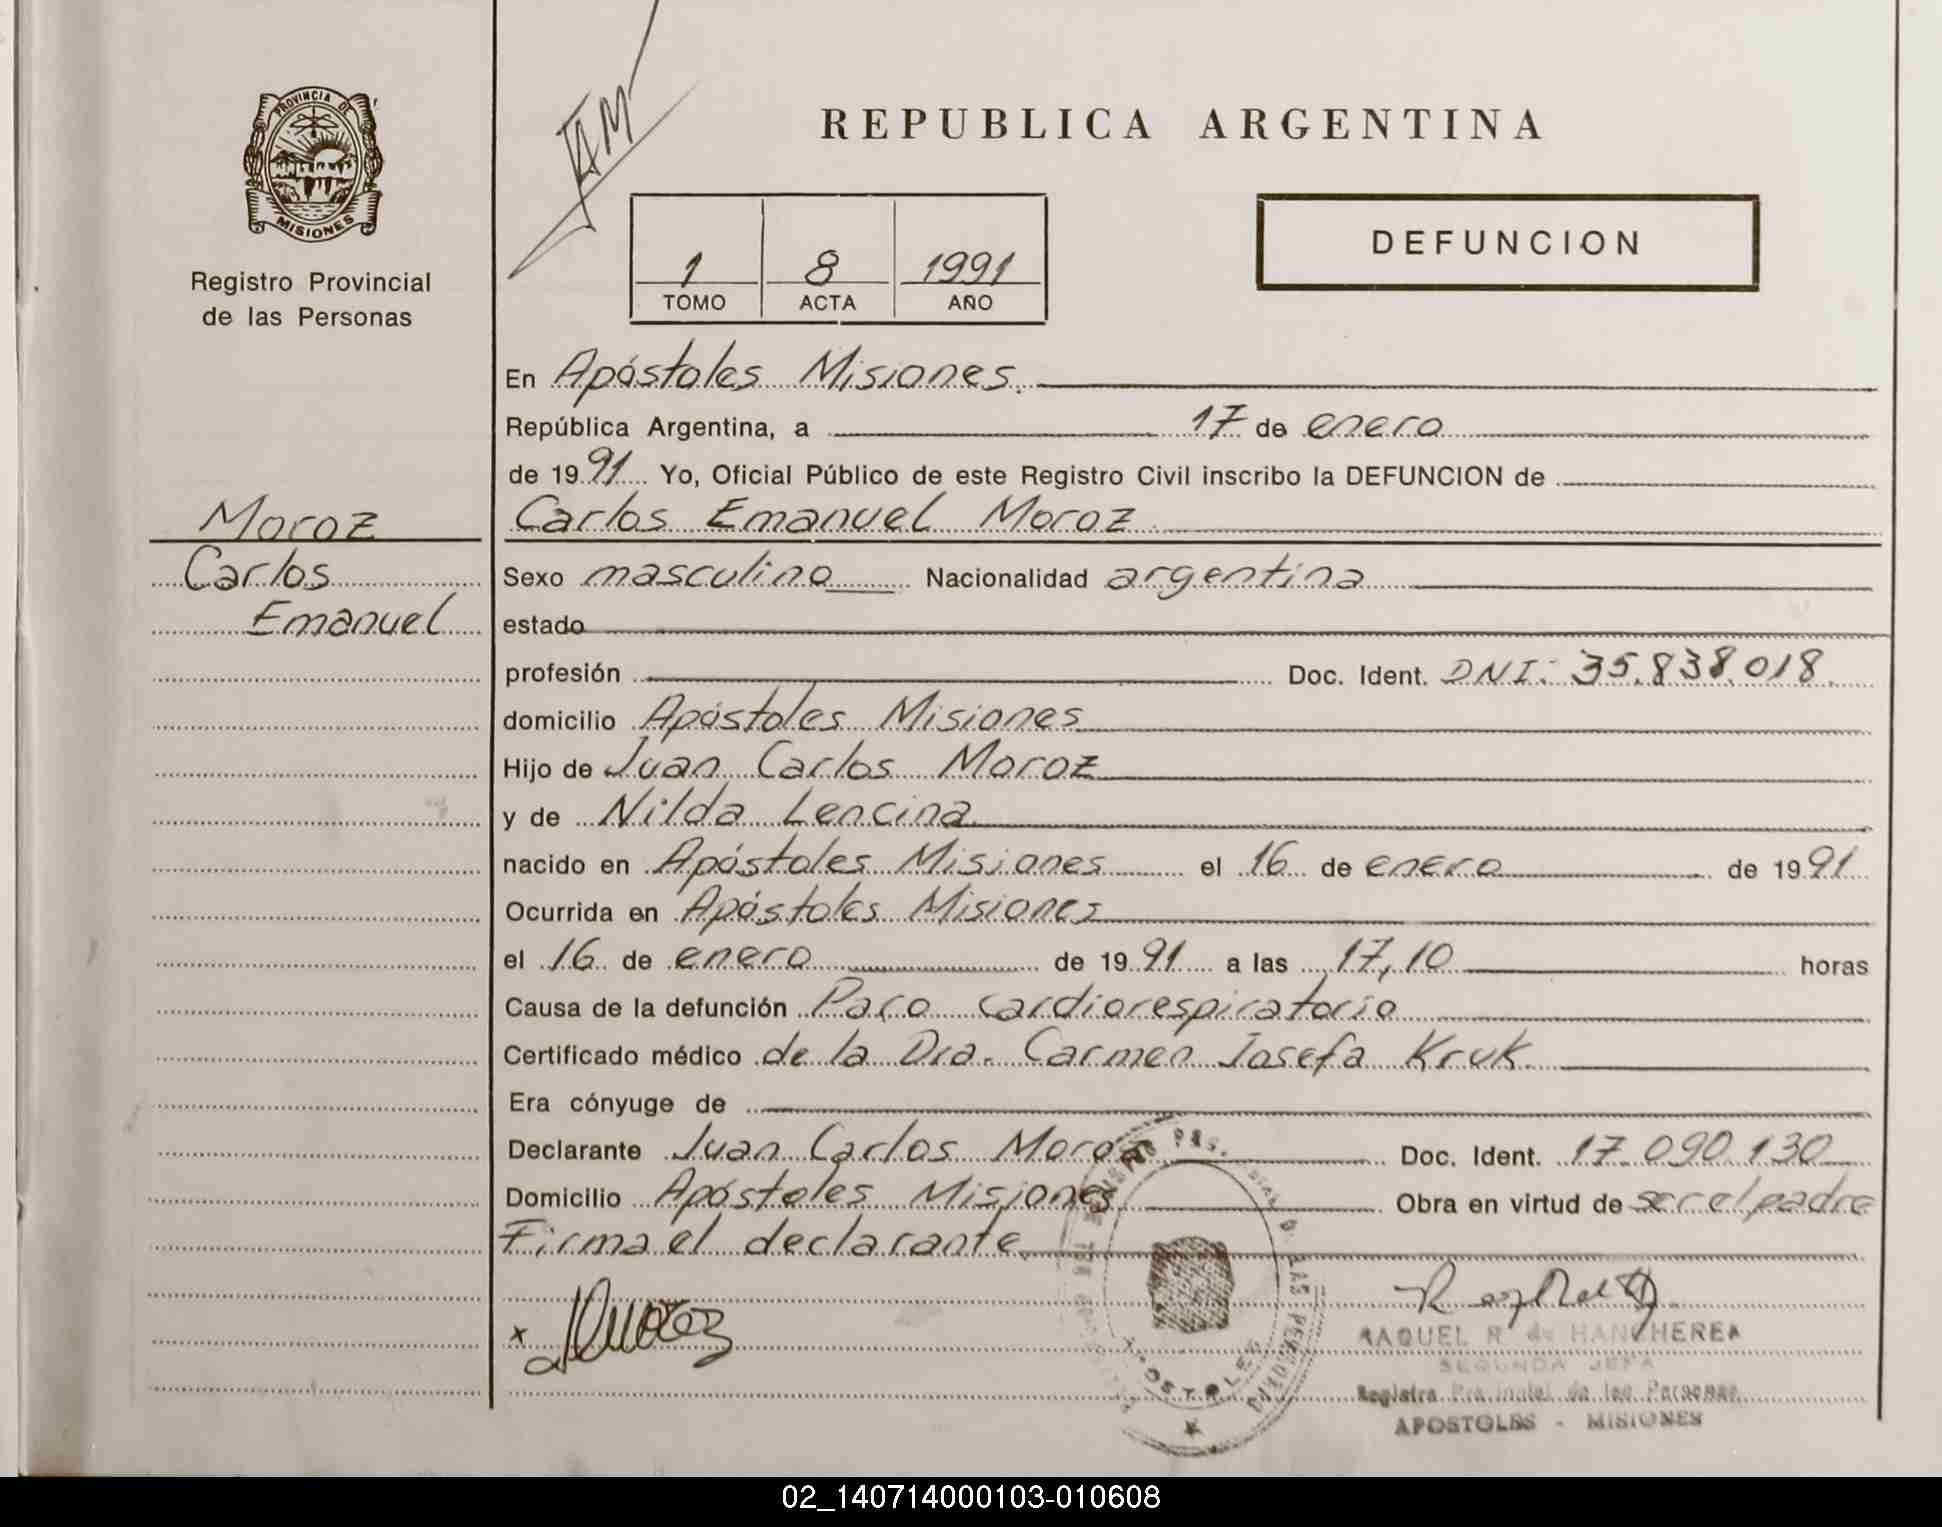 PROVINCIA DE
MISIONES
Registro Provincial
de las Personas
Moroz
Carlos
Emanuel
JAM
REPUBLICA ARGENTINA
1 8 1991
TOMO ACTA AÑO
DEFUNCION
En Apóstoles Misiones.
República Argentina, a 17 de enero
de 1991 Yo, Oficial Público de este Registro Civil inscribo la DEFUNCION de
Carlos Emanuel Moroz
Sexo masculino Nacionalidad argentina
estado
profesión Doc. Ident. DNI: 35.838.018.
domicilio Apóstoles Misiones
Hijo de Juan Carlos Moroz
y de Nilda Lencina
nacido en Apóstoles Misiones el 16 de enero de 1991
Ocurrida en Apóstoles Misiones
el 16 de enero de 1991 a las 17,10 horas
Causa de la defunción Paro cardiorespiratorio
Certificado médico de la Dra. Carmen Josefa Kruk.
Era cónyuge de
Declarante Juan Carlos Moroz Doc. Ident. 17.090.130
Domicilio Apóstoles Misiones Obra en virtud de ser el padre
Firma el declarante
x Moroz
RAQUEL R. de
SEGUNDA JEFA
Registro Provincial de las Personas
APOSTOLES - MISIONES
02_140714000103-010608